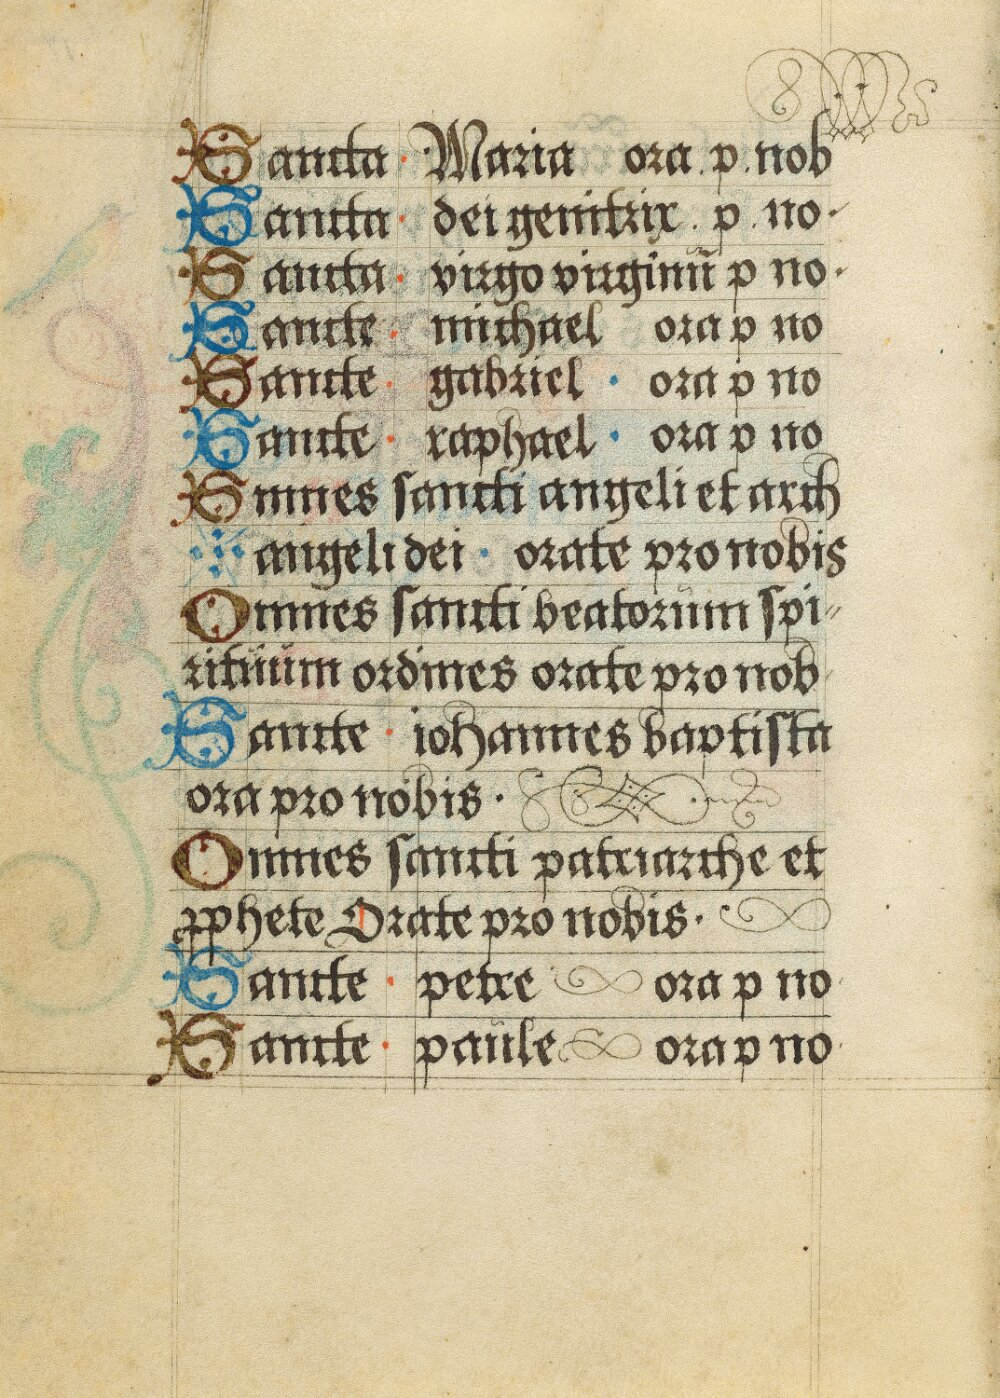 Sancta · Maria ora . p . nob
Sancta · dei genitrix . p . no ·
Sancta · virgo virginũ p no ·
Sancte · michael ora p no
Sancte · gabriel · ora p no
Sancte · raphael · ora p no
Omnes sancti angeli et arch
angeli dei · orate pro nobis
Omnes sancti beatorum spi-
rituum ordines orate pro nob
Sancte · iohannes baptista
ora pro nobis ·
Omnes sancti patriarche et
pphete Orate pro nobis ·
Sancte · petre ora p no
Sancte · paule ora p no